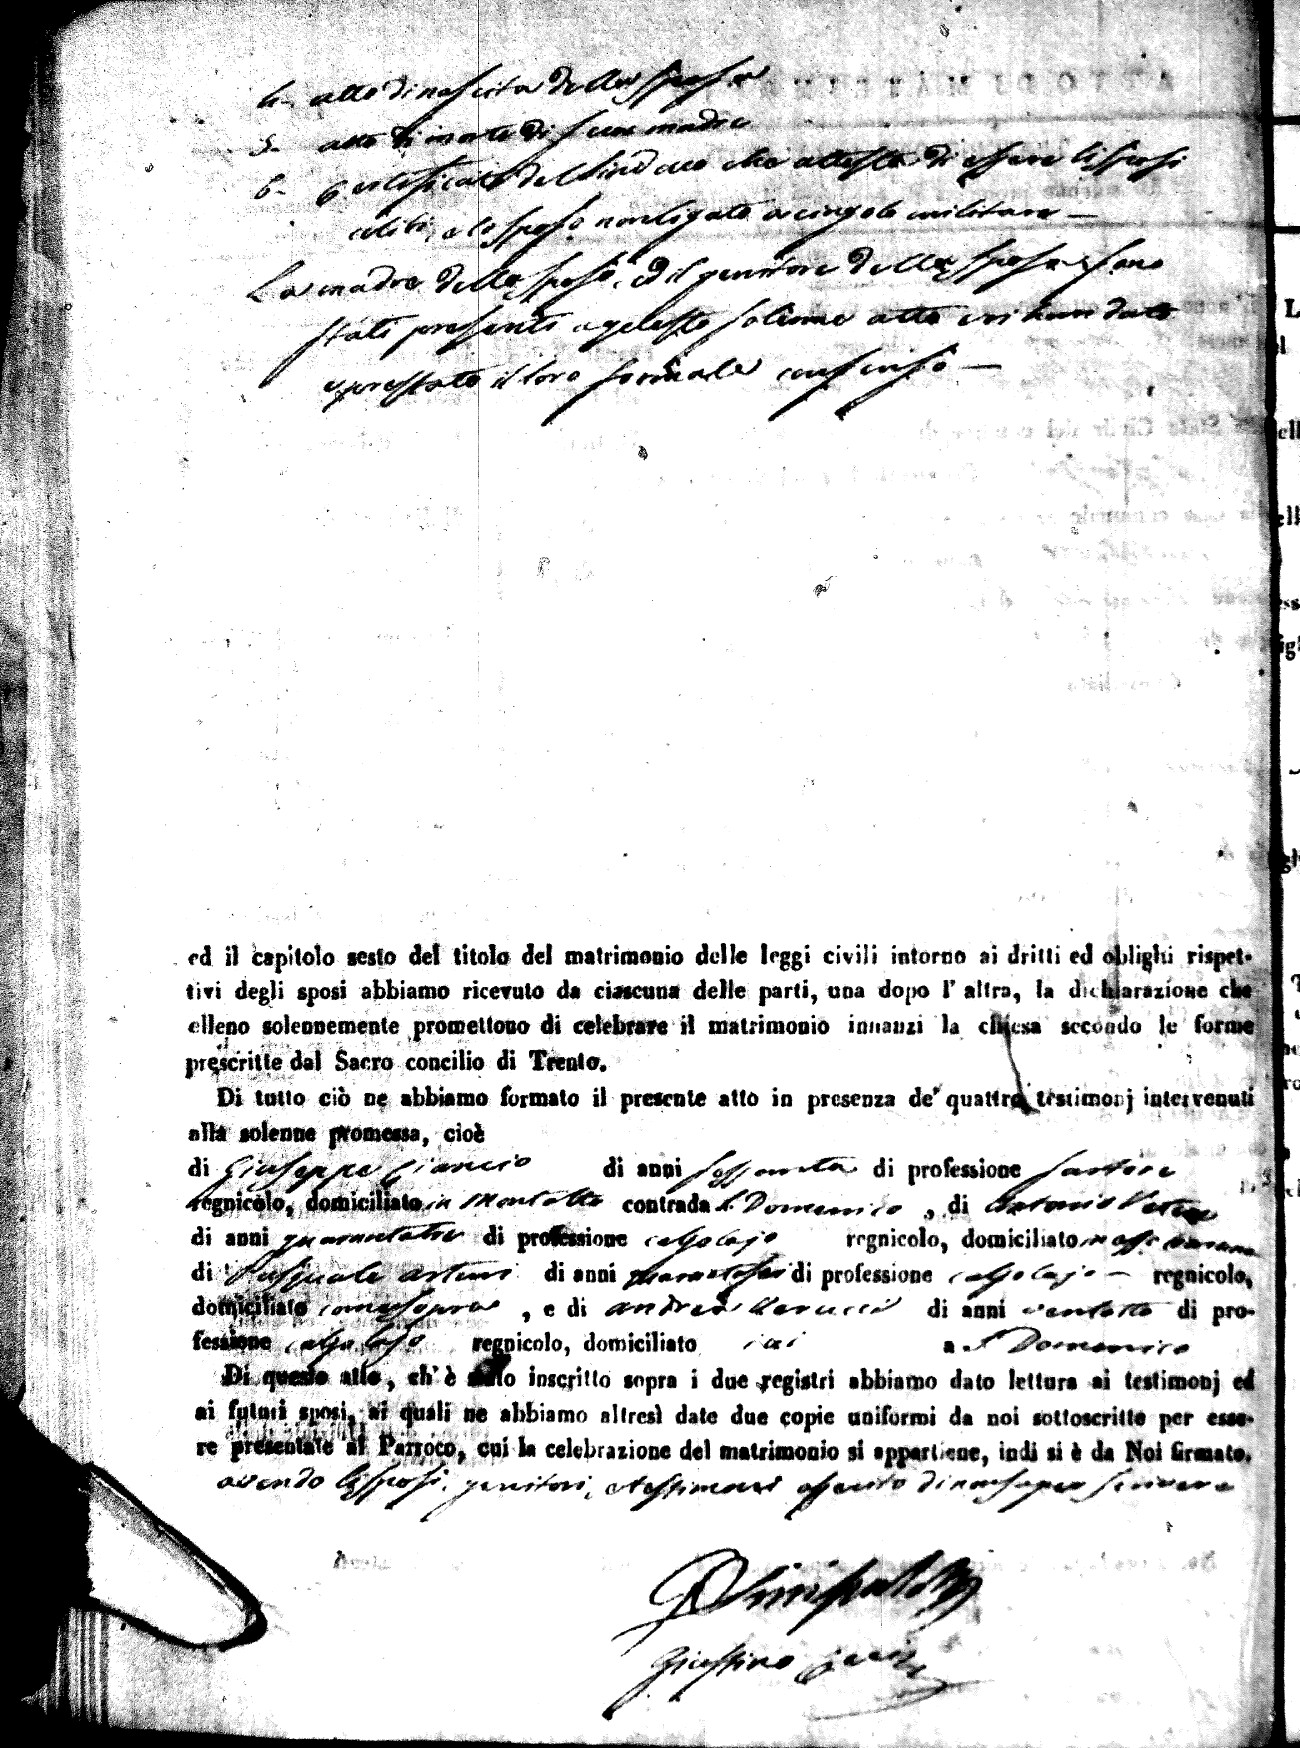 4. atto di nascita della sposa
5. atto di morte di sua madre
6. Certificato del Sindaco che attesta di essere li sposi
celibi, e lo sposo non ligato a cingolo militare —
La madre dello sposo, ed il genitore della sposa sono
stati presenti a questo solenne atto ed han dato
e prestato il loro formale consenso —
ed il capitolo sesto del titolo del matrimonio delle leggi civili intorno ai dritti ed oblighi rispet-
tivi degli sposi abbiamo ricevuto da ciascuna delle parti, una dopo l' altra, la dichiarazione che
elleno solennemente promettono di celebrare il matrimonio innanzi la chiesa secondo le forme
prescritte dal Sacro concilio di Trento.
Di tutto ciò ne abbiamo formato il presente atto in presenza de' quattro testimonj intervenuti
alla solenne promessa, cioè
di Giuseppe Ciancio di anni sessanta di professione sartore
regnicolo, domiciliato in Montalto contrada S. Domenico , di Antonio
di anni quarantatre di professione calzolajo regnicolo, domiciliato
di Pasquale Arturi di anni quarantasei di professione calzolajo — regnicolo,
domiciliato come sopra , e di Andrea di anni ventotto di pro-
fessione calzolajo regnicolo, domiciliato ivi a S. Domenico
Di questo atto, ch' è stato inscritto sopra i due registri abbiamo dato lettura ai testimonj ed
ai futuri sposi, ai quali ne abbiamo altresì date due copie uniformi da noi sottoscritte per esse-
re presentate al Parroco, cui la celebrazione del matrimonio si appartiene, indi si è da Noi firmato,
avendo li sposi, genitori, e testimoni asserito di non saper scrivere